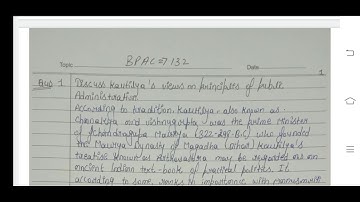 BPAC⇒132
Topic
Date
1
Ques 1 Discuss Kautilya's views on principles of Public
Administration.
According to tradition, Kautilya, also known as
Chanakya and Vishnugupta, was the prime Minister
of Chandragupta Maurya (322-298 B.C) who founded
the Maurya Dynasty of Magadha (Bihar) Kautilya's
treatise known as Arthasastra may be regarded as an
ancient Indian text-book of practical politics. It
according to some, ranks in importance with